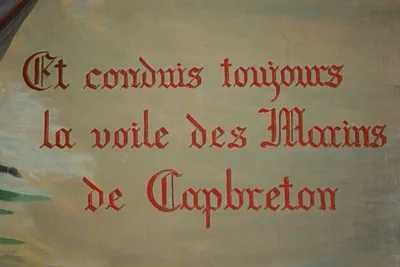 Et conduis toujours
la voile des Marins
de Capbreton